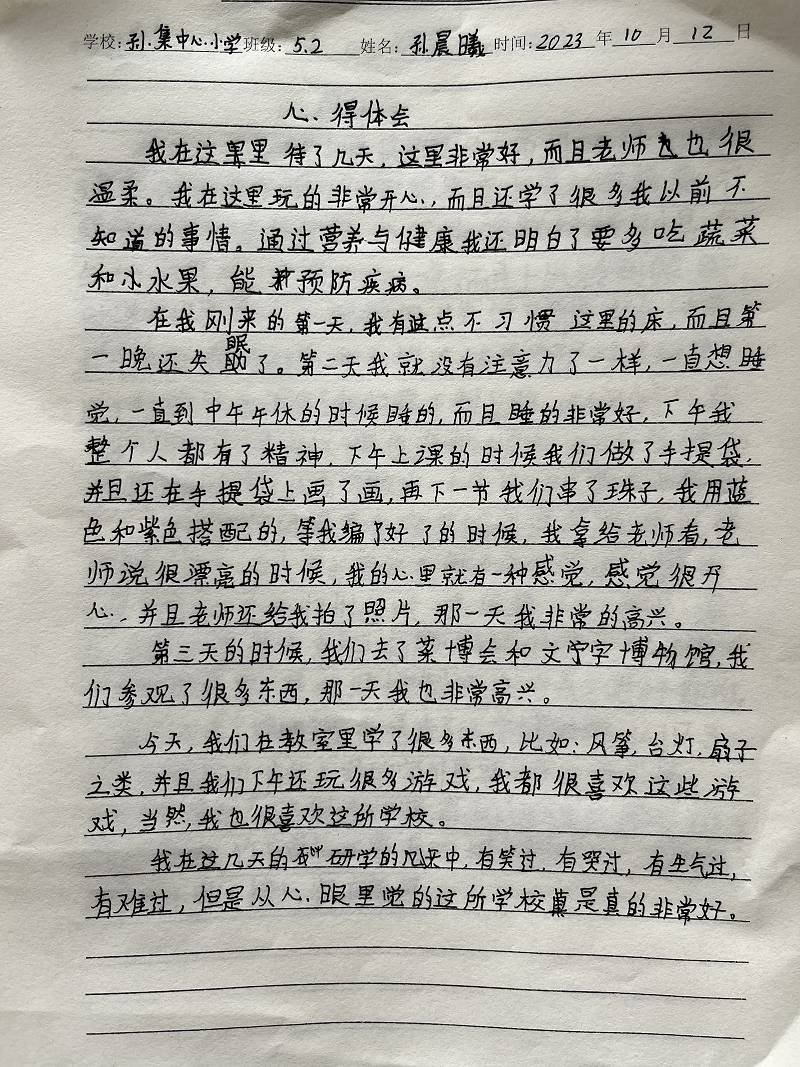 学校:孙集中心小学班级:5.2 姓名:孙晨曦时间:2023年10月12日
心得体会
我在这里里待了几天，这里非常好，而且老师也也很
温柔。我在这里玩的非常开心，而且还学了很多我以前不
知道的事情。通过营养与健康我还明白了要多吃蔬菜
和小水果，能预防疾病。
在我刚来的第一天，我有这点不习惯 这里的床，而且第
一晚还失眠了。第二天我就没有注意力了一样，一直想睡
觉，一直到中午午休的时候睡的，而且睡的非常好，下午我
整个人都有了精神，下午上课的时候我们做了手提袋，
并且还在手提袋上画了画，再下一节我们串了珠子，我用蓝
色和紫色搭配的，等我编了好了的时候，我拿给老师看，老
师说很漂亮的时候，我的心里就有一种感觉，感觉很开
心，并且老师还给我拍了照片，那一天我非常的高兴。
第三天的时候，我们去了菜博会和文字博物馆，我
们参观了很多东西，那一天我也非常高兴。
今天，我们在教室里学了很多东西，比如：风筝，台灯，扇子
之类，并且我们下午还玩很多游戏，我都很喜欢这些游
戏，当然，我也很喜欢这所学校。
我在这几天的研学的中，有笑过，有哭过，有生气过，
有难过，但是从心眼里觉的这所学校真是真的非常好。